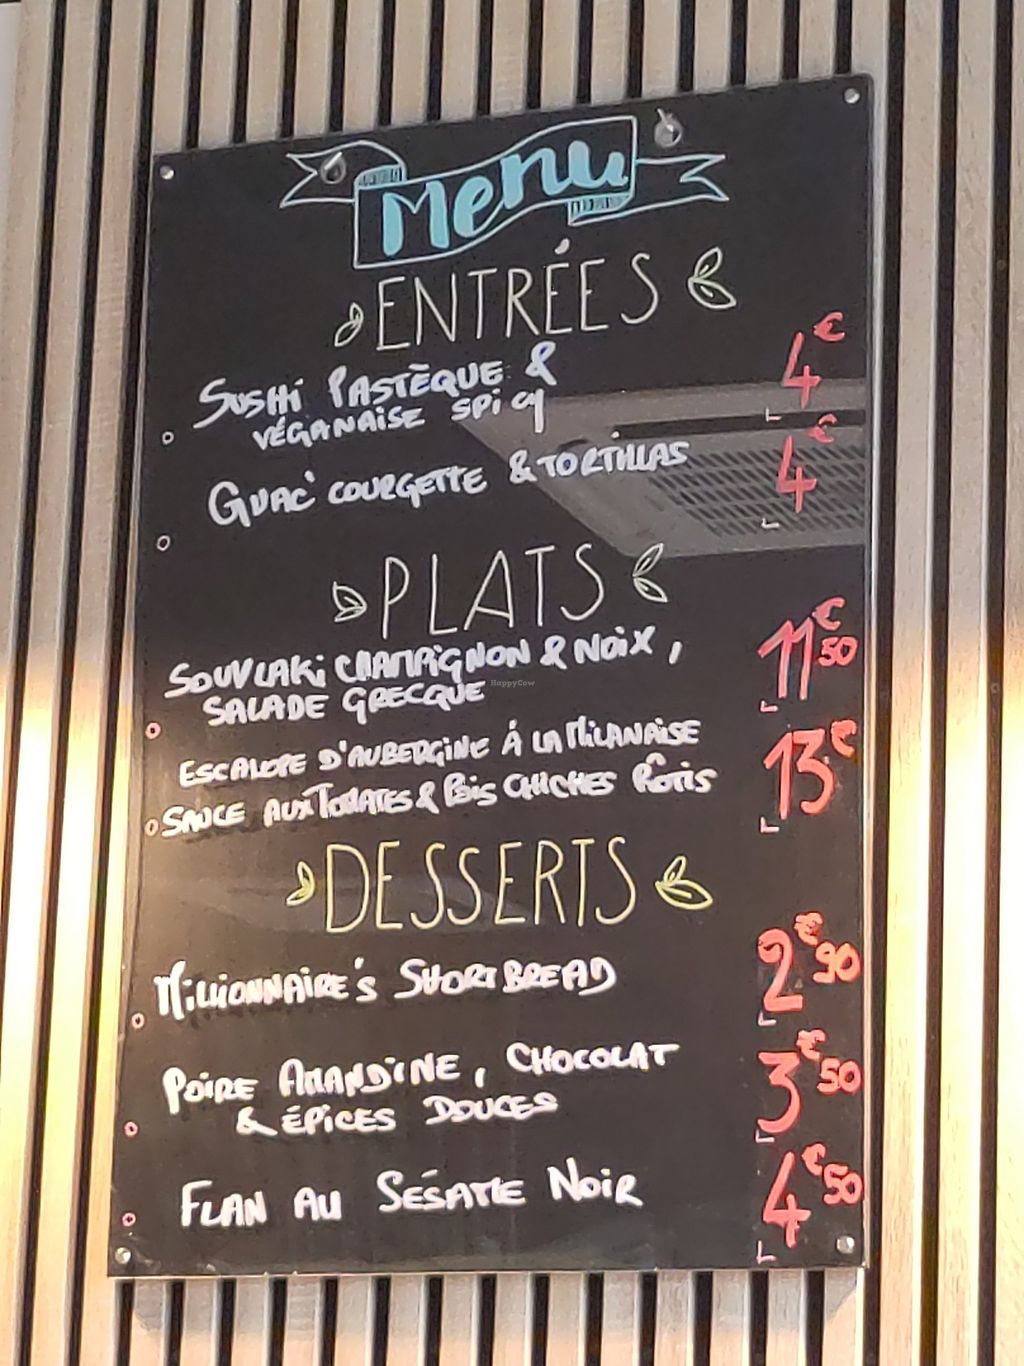 Menu
ENTRÉES
SUSHI PASTÈQUE & 4€
VÉGANAISE SPICY
GUAC' COURGETTE & TORTILLAS 4€
PLATS
SOUVLAKI CHAMPIGNON & NOIX, 11€50
SALADE GRECQUE
HappyCow
ESCALOPE D'AUBERGINE À LA MILANAISE 13€
SAUCE AUX TOMATES & POIS CHICHES RÔTIS
DESSERTS
MILLIONNAIRE'S SHORTBREAD 2€90
POIRE AMANDINE, CHOCOLAT 3€50
& ÉPICES DOUCES
FLAN AU SÉSAME NOIR 4€50